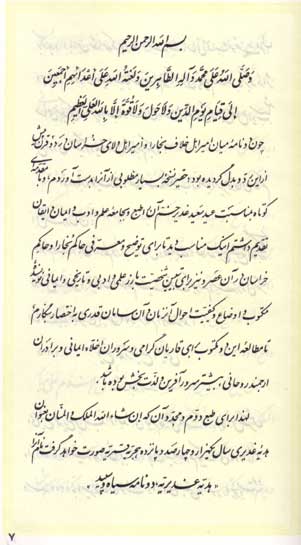 بسم الله الرحمن الرحیم
وصلی الله علی محمد وآله الطاهرین ولعنة الله علی أعدائهم أجمعین
إلی قیام یوم الدین ولا حول ولا قوة إلا بالله العلی العظیم
چون دو نامه میان امیر اهل خلاف بخارا و امیر اهل ولای خراسان در دو قرن پیش
از این رد و بدل گردیده بود، حقیر نسخه بسیار مطلوبی از آنرا بدست آوردم، و با مقدمه‌ی
کوتاه بمناسبت عید سعید غدیر بزرگ آن را طبع و بجامعه علم و ادب و ایمان و ایقان
تقدیم داشتم، اینک مناسب دیدم تا برای توضیح و معرفی حاکم بخارا و حاکم
خراسان در آن عصر و نیز برای تعیین شخصیت بارز علمی و ادبی و تاریخی و ایمانی نویسنده
مکتوب و اوضاع و کیفیت احوال آن زمان و آن سامان قدری باختصار بنگارم
تا مطالعه این دو مکتوب برای قاریان گرامی و سروران و اخلاء ایمانی و برادران
ارجمند روحانی بیشتر سرور آفرین و لذت بخش بوده باشد.
لهذا برای طبع دوم و مجدد آن که إن شاء الله الملک المنان بعنوان
هدیه غدیری سال یکهزار و چهارصد و پانزده هجریه قمریه صورت خواهد گرفت نام آنرا
«هدیه غدیریه: دو نامه سیاه و سپید»
۷